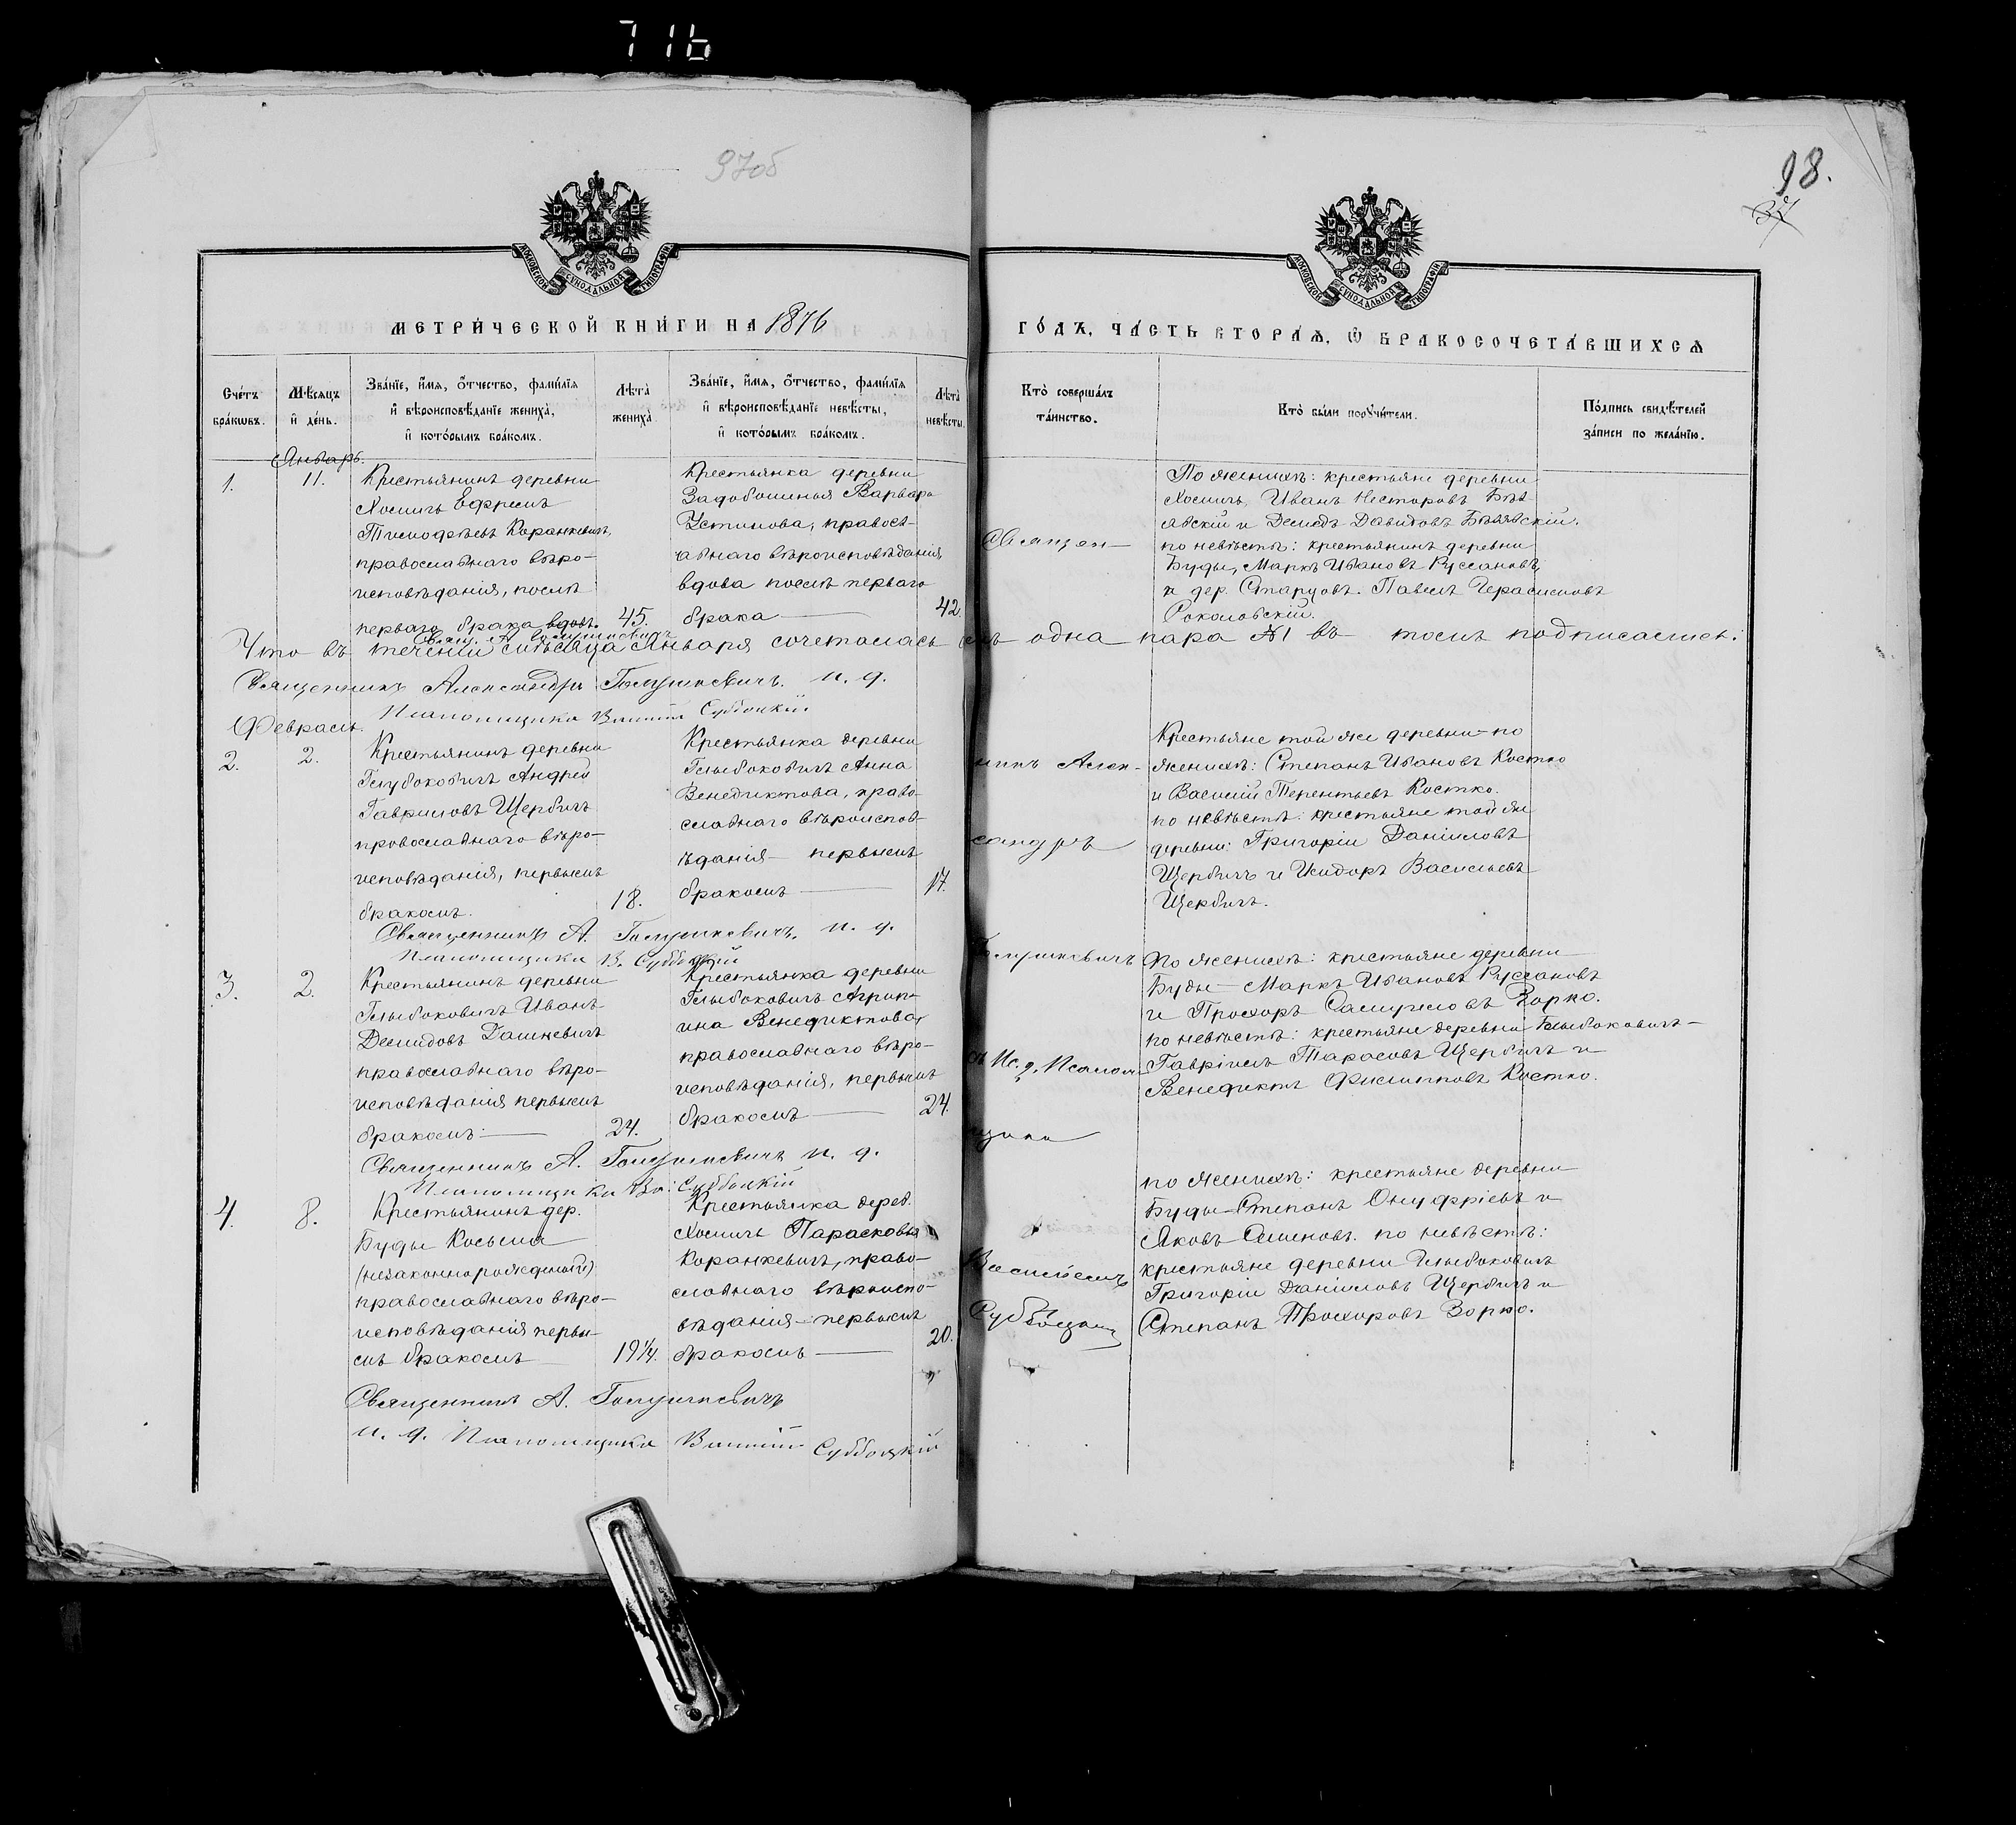 716
97об
98.
37
МОСКОВСКОЙ СУНОДАЛЬНОЙ ТИПОГРАФІИ
МОСКОВСКОЙ СУНОДАЛЬНОЙ ТИПОГРАФІИ
МЕТРИЧЕСКОЙ КНИГИ НА 1876
ГОДЪ, ЧАСТЬ ВТОРАЯ, Ѡ БРАКОСОЧЕТАВШИХСЯ
Счетъ браковъ.
Мѣсяцъ и день.
Званіе, имя, отчество, фамилія
и вѣроисповѣданіе жениха,
и которымъ бракомъ.
Лѣта
жениха.
Званіе, имя, отчество, фамилія
и вѣроисповѣданіе невѣсты,
и которымъ бракомъ.
Лѣта
невѣсты.
Кто совершалъ
таинство.
Кто были поручители.
Подпись свидѣтелей
записи по желанію.
Январь.
1.
11.
Крестьянинъ деревни
Хоминъ Ефремъ
Тимофѣевъ Коранкевичъ,
православнаго вѣро-
исповѣданія, послѣ
перваго брака вдовъ.
45.
Крестьянка деревни
Задобошенья Варвара
Устинова, правосл-
авнаго вѣроисповѣданія
вдова послѣ перваго
брака
42.
По женихѣ: крестьяне деревни
Хоминъ, Иванъ Несторовъ Бѣл-
явскій и Демидъ Давидовъ Бѣлявскій.
по невѣстѣ: крестьянинъ деревни
Буды, Маркъ Ивановъ Руссановъ,
и дер. Старцовъ. Павелъ Герасимовъ
Роколовскій.
Свящ. А.
Что въ теченіи мѣсяца Января сочеталась одна пара №1 въ томъ подписаемся:
Священникъ Александръ Голушкевичъ. И. д.
Псаломщика Василій Субботскій
Февраль.
2.
2.
Крестьянинъ деревни
Глубоковичъ Андрей
Гавриловъ Щербичъ
провославнаго вѣро-
исповѣданія, первымъ
бракомъ.
18.
Крестьянка деревни
Глыбоковичъ Анна
Венедиктова, право-
славнаго вѣроиспов-
ѣданія - первымъ
бракомъ
17.
Крестьяне той же деревни - по
женихѣ: Степанъ Ивановъ Костко
и Василій Терентьевъ Костко.
по невѣстѣ: крестьяне той же
деревни: Григоріи Даніиловъ
Щербичъ и Исидоръ Васильевъ
Щербичъ.
Священникъ А. Голушкевичъ. И. д.
Псаломщика В. Субботскій
3.
2.
Крестьянинъ деревни
Глыбоковичъ Иванъ
Демидовъ Дашкевичъ
православнаго вѣро-
исповѣданія первымъ
бракомъ
24.
Крестьянка деревни
Глыбоковичъ Агрип-
ина Венедиктова,
православнаго вѣро-
исповѣданія, первымъ
бракомъ
24.
По женихѣ: крестьяне деревни
Буды - Маркъ Ивановъ Руссановъ
и Прохоръ Самуиловъ Зорко.
по невѣстѣ: крестьяне деревни Глыбоковичъ -
Гавріилъ Тарасовъ Щербичъ и
Венедиктъ Филипповъ Костко.
Священникъ А. Голушкевичъ И. д.
Псаломщика Ва: Субботскій
4.
8.
Крестьянинъ дер.
Буды Косьма
(незаконнорожденный)
православнаго вѣро-
исповѣданія первы-
мъ бракомъ
19¼.
Крестьянка дерев.
Хоминъ Парасковья
Коранкевичъ, право-
славнаго вѣроиспо-
вѣданія - первымъ
бракомъ
20.
по женихѣ: крестьяне деревни
Буды - Степанъ Онуфріевъ и
Яковъ Семеновъ. по невѣстѣ:
крестьяне деревни Глыбоковичъ
Григоріи Даніиловъ Щербичъ и
Степанъ Прохоровъ Зорко.
Священникъ А. Голушкевичъ
И. д. Псаломщика Василій Субботскій
Священ-
никъ Алек-
сандръ
Голушкевичъ
съ Ис. д. Псалом-
щика
Василіемъ
Субботскимъ